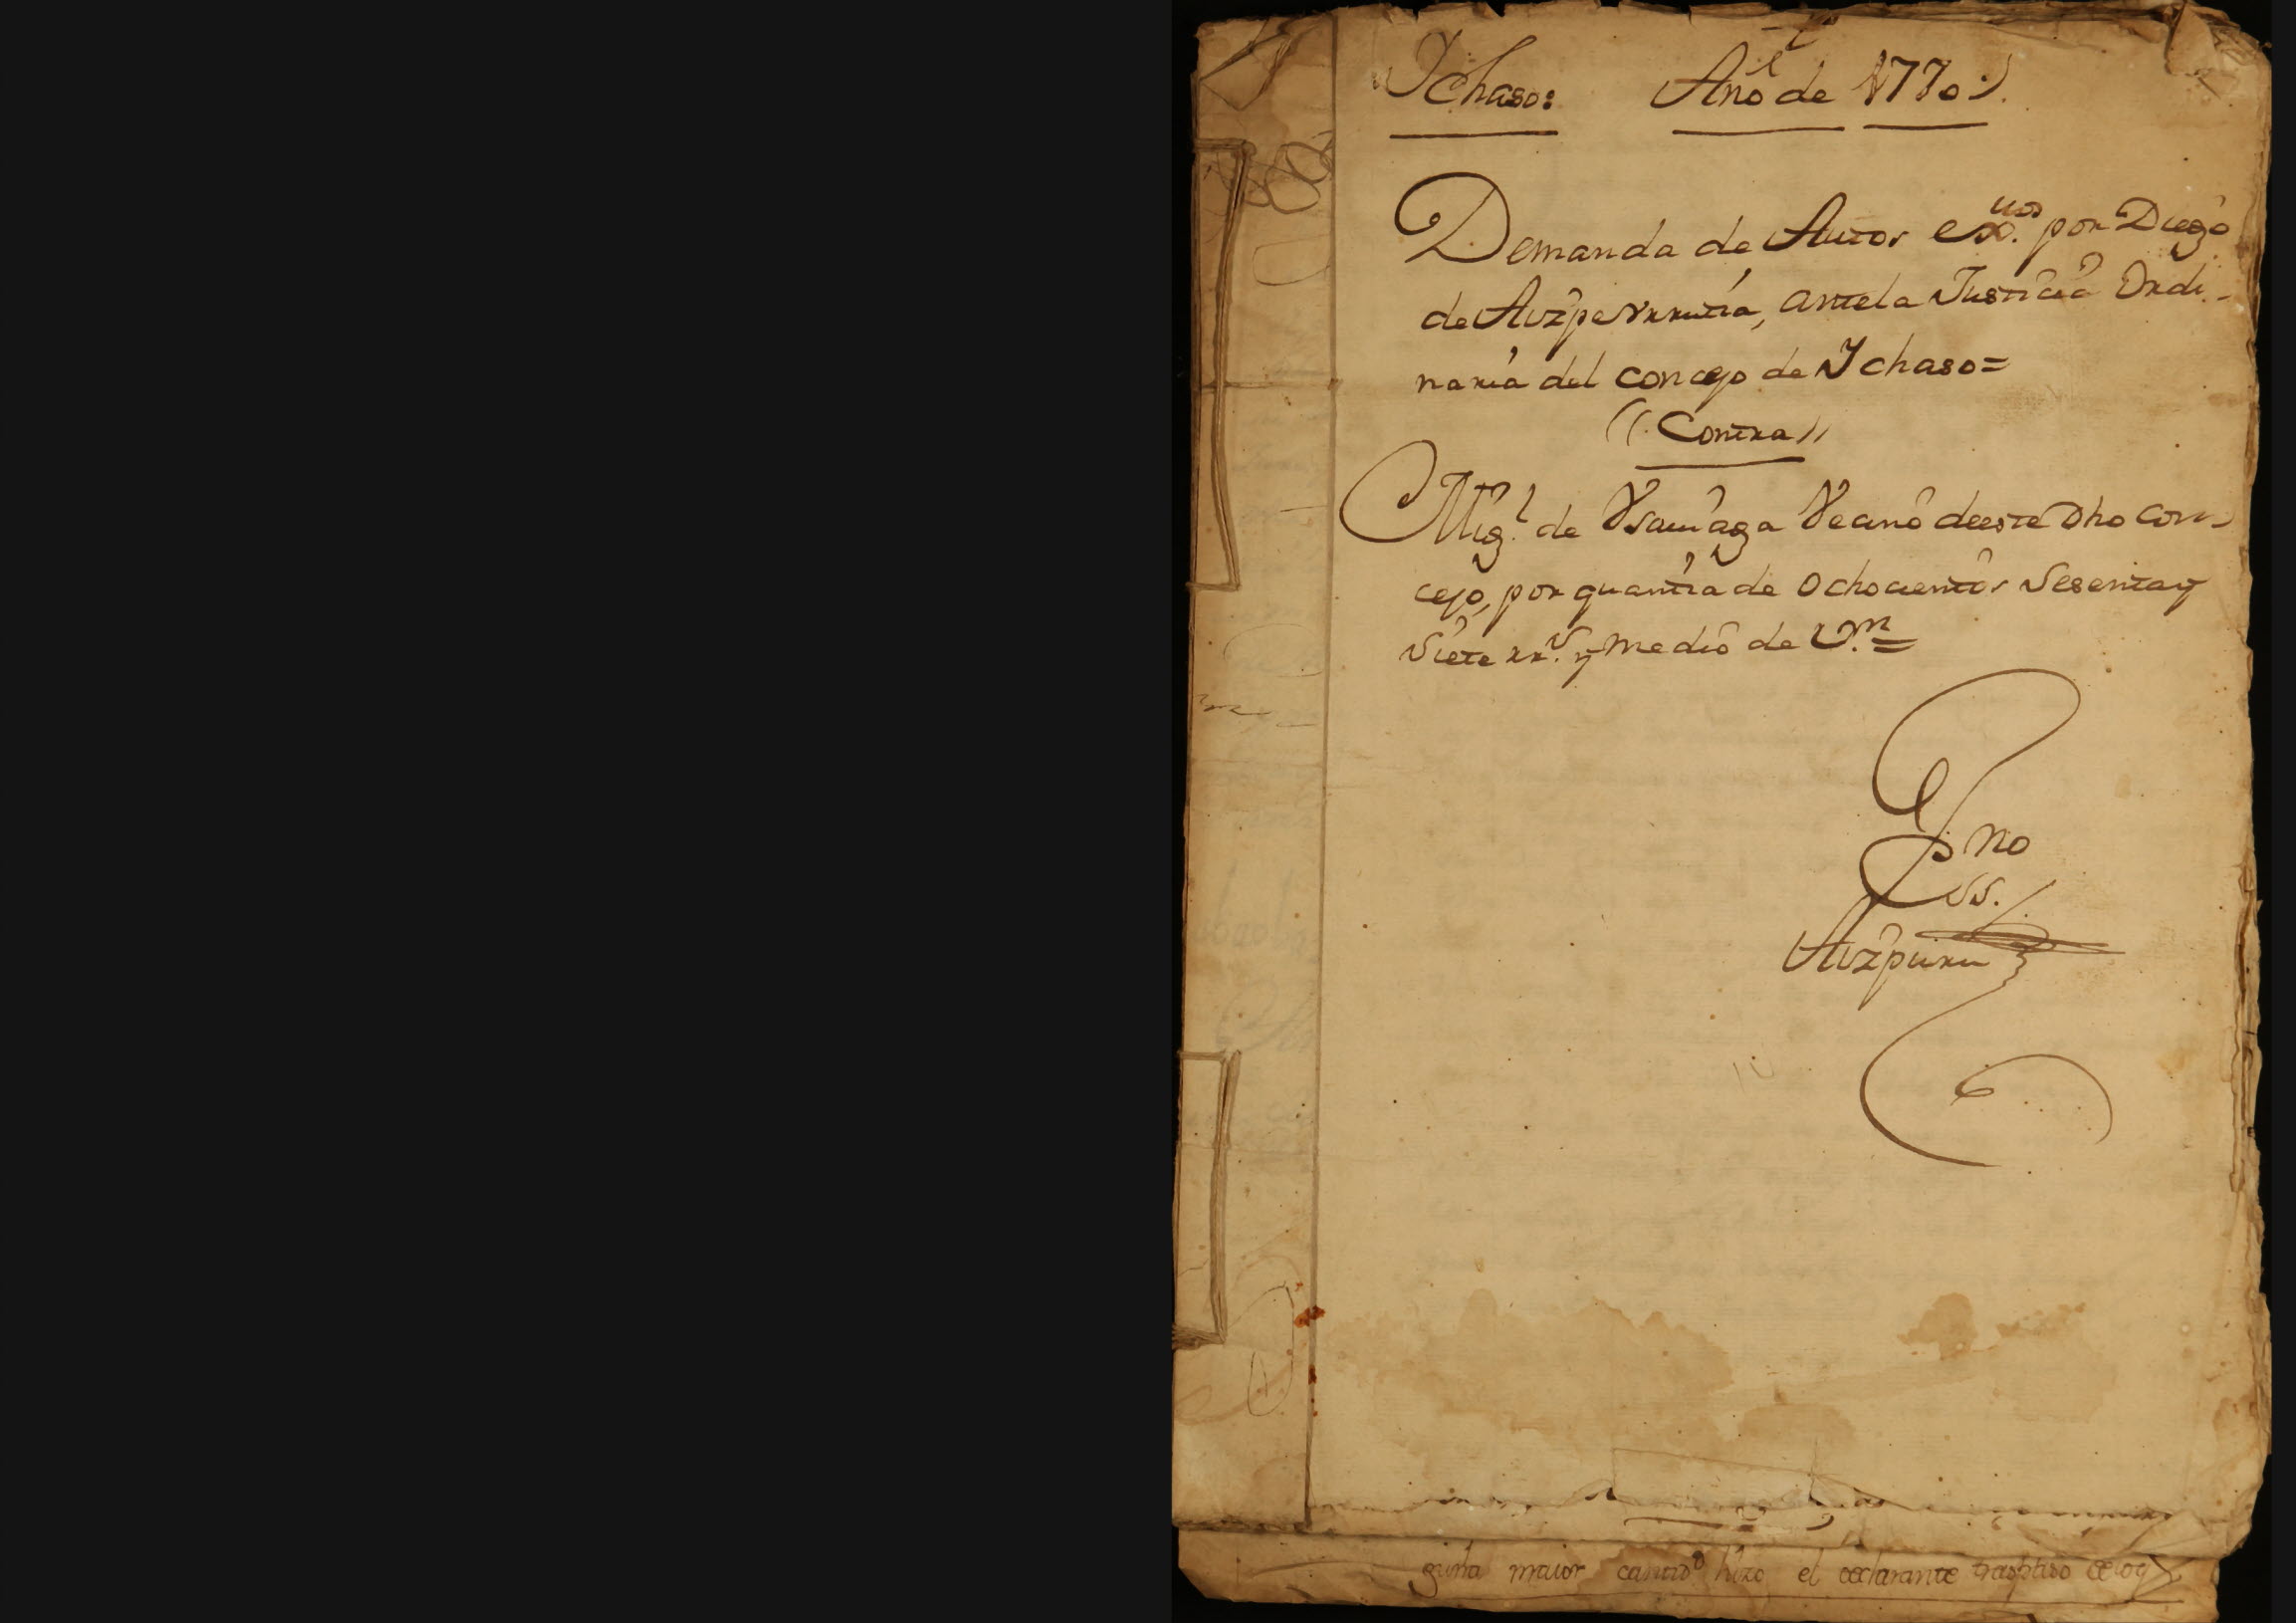 Ychaso: Año de 1770.
Demanda de Autos exvos. por Diego
de Aizpe Vrrutia, ante la Justicia Ordi-
naria del concejo de Ychaso=
Contra
Migl. de Vsauiaga Vecino de este dho con-
cejo, por quantia de ochocientos Sesenta y
Siete rrs. y medio de Vn.=
Esno
Ss.
Aizpuru
maior cantidd hizo el declarante traspaso